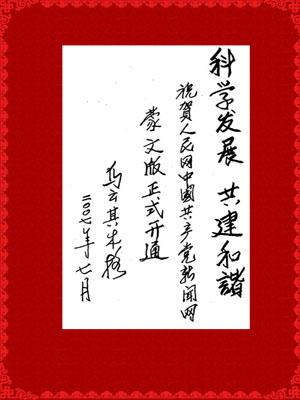 科学发展 共建和谐
祝贺人民网中國共产党新闻网
蒙文版正式开通
乌云其木格
二〇〇七年七月